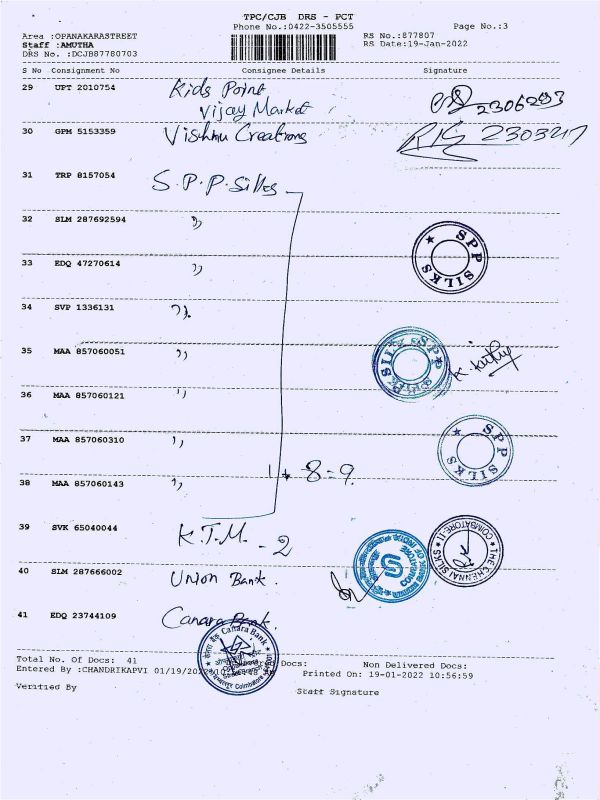 TPC/CJB DRS - PCT
Phone No.:0422-3505555 Page No.:3
Area :OPANAKARASTREET RS No.:877807
Staff :AMUTHA RS Date:19-Jan-2022
DRS No. :DCJB87780703
S No Consignment No Consignee Details Signature
29 UPT 2010754 Kids Point
Vijay Market 2306293
30 GPM 5153359 Vishnu Creations 2303217
31 TRP 8157054 S.P.P. Silks
32 SLM 287692594 "
SPP SILKS
33 EDQ 47270614 "
34 SVP 1336131 "
35 MAA 857060051 "
SPP SILKS
36 MAA 857060121 "
37 MAA 857060310 "
SPP SILKS
1 + 8 = 9.
38 MAA 857060143 "
39 SVK 65040044 K.T.M. - 2
THE CHENNAI SILKS COIMBATORE-1
40 SLM 287666002 Union Bank.
41 EDQ 23744109 Canara Bank.
Canara Bank
Coimbatore
Total No. Of Docs: 41 Docs: Non Delivered Docs:
Entered By :CHANDRIKAPVI 01/19/2022 Printed On: 19-01-2022 10:56:59
Verified By Staff Signature